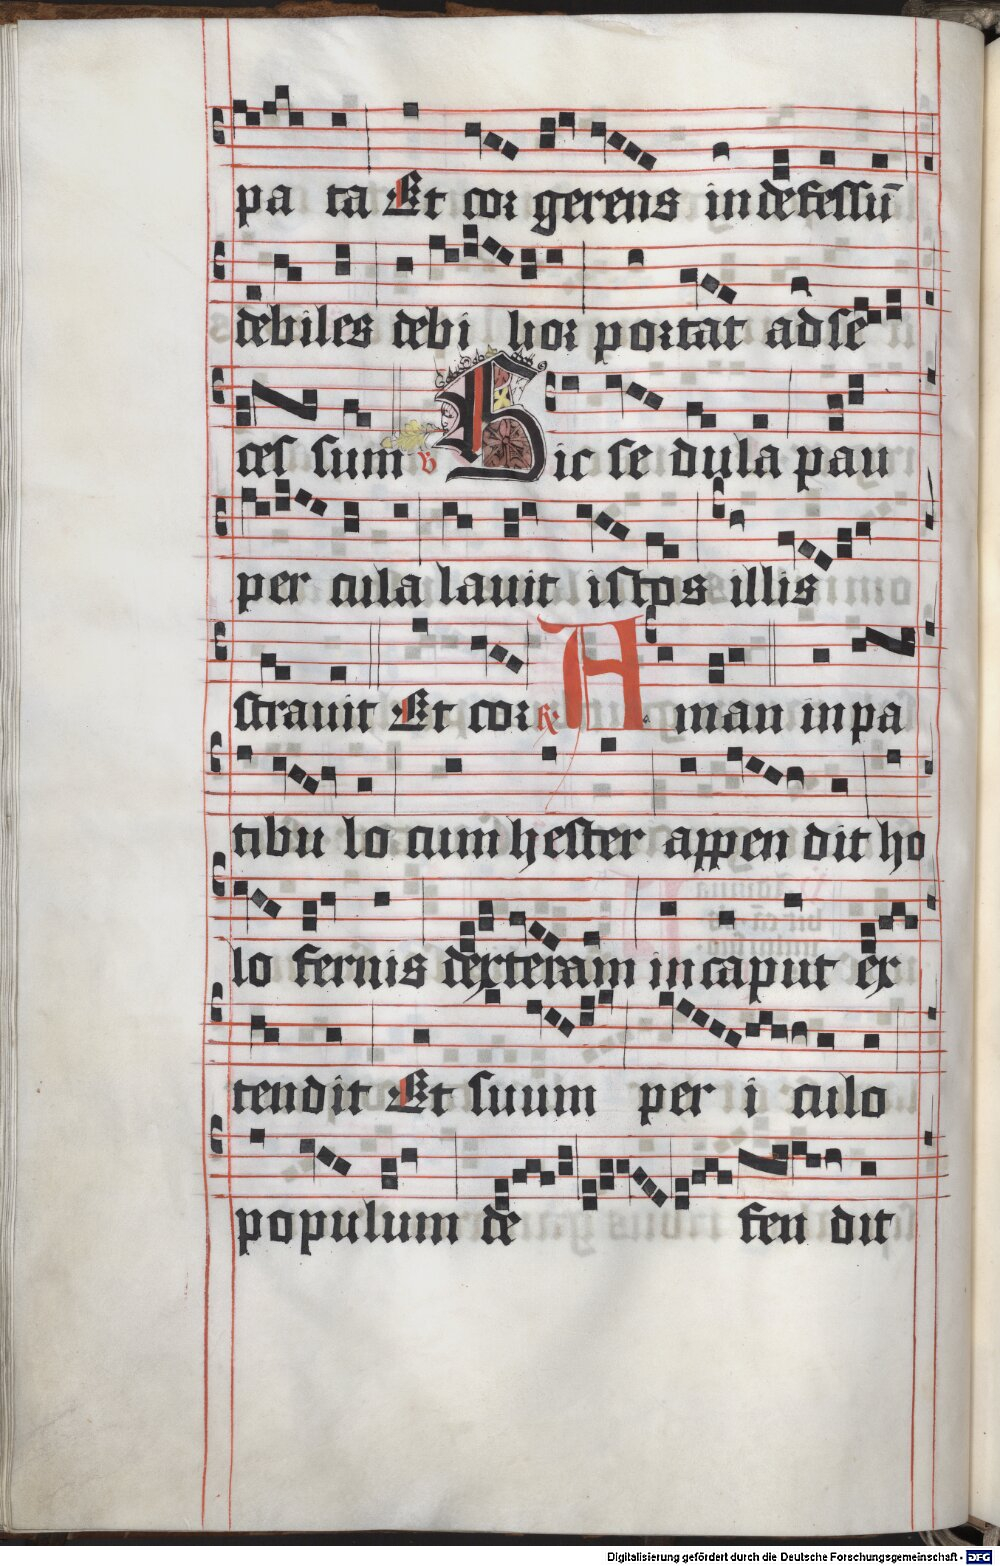 pa ta Et cor gerens indefessū
debiles debi lior portat ad se
ces sum v Hic se dula pau
per cula lauit istos illis
strauit Et cor R Aman in pa
tibu lo cum hester appen dit ho
lo fernis dexteram in caput ex
tendit Et suum per i culo
populum de fen dit
Digitalisierung gefördert durch die Deutsche Forschungsgemeinschaft - DFG